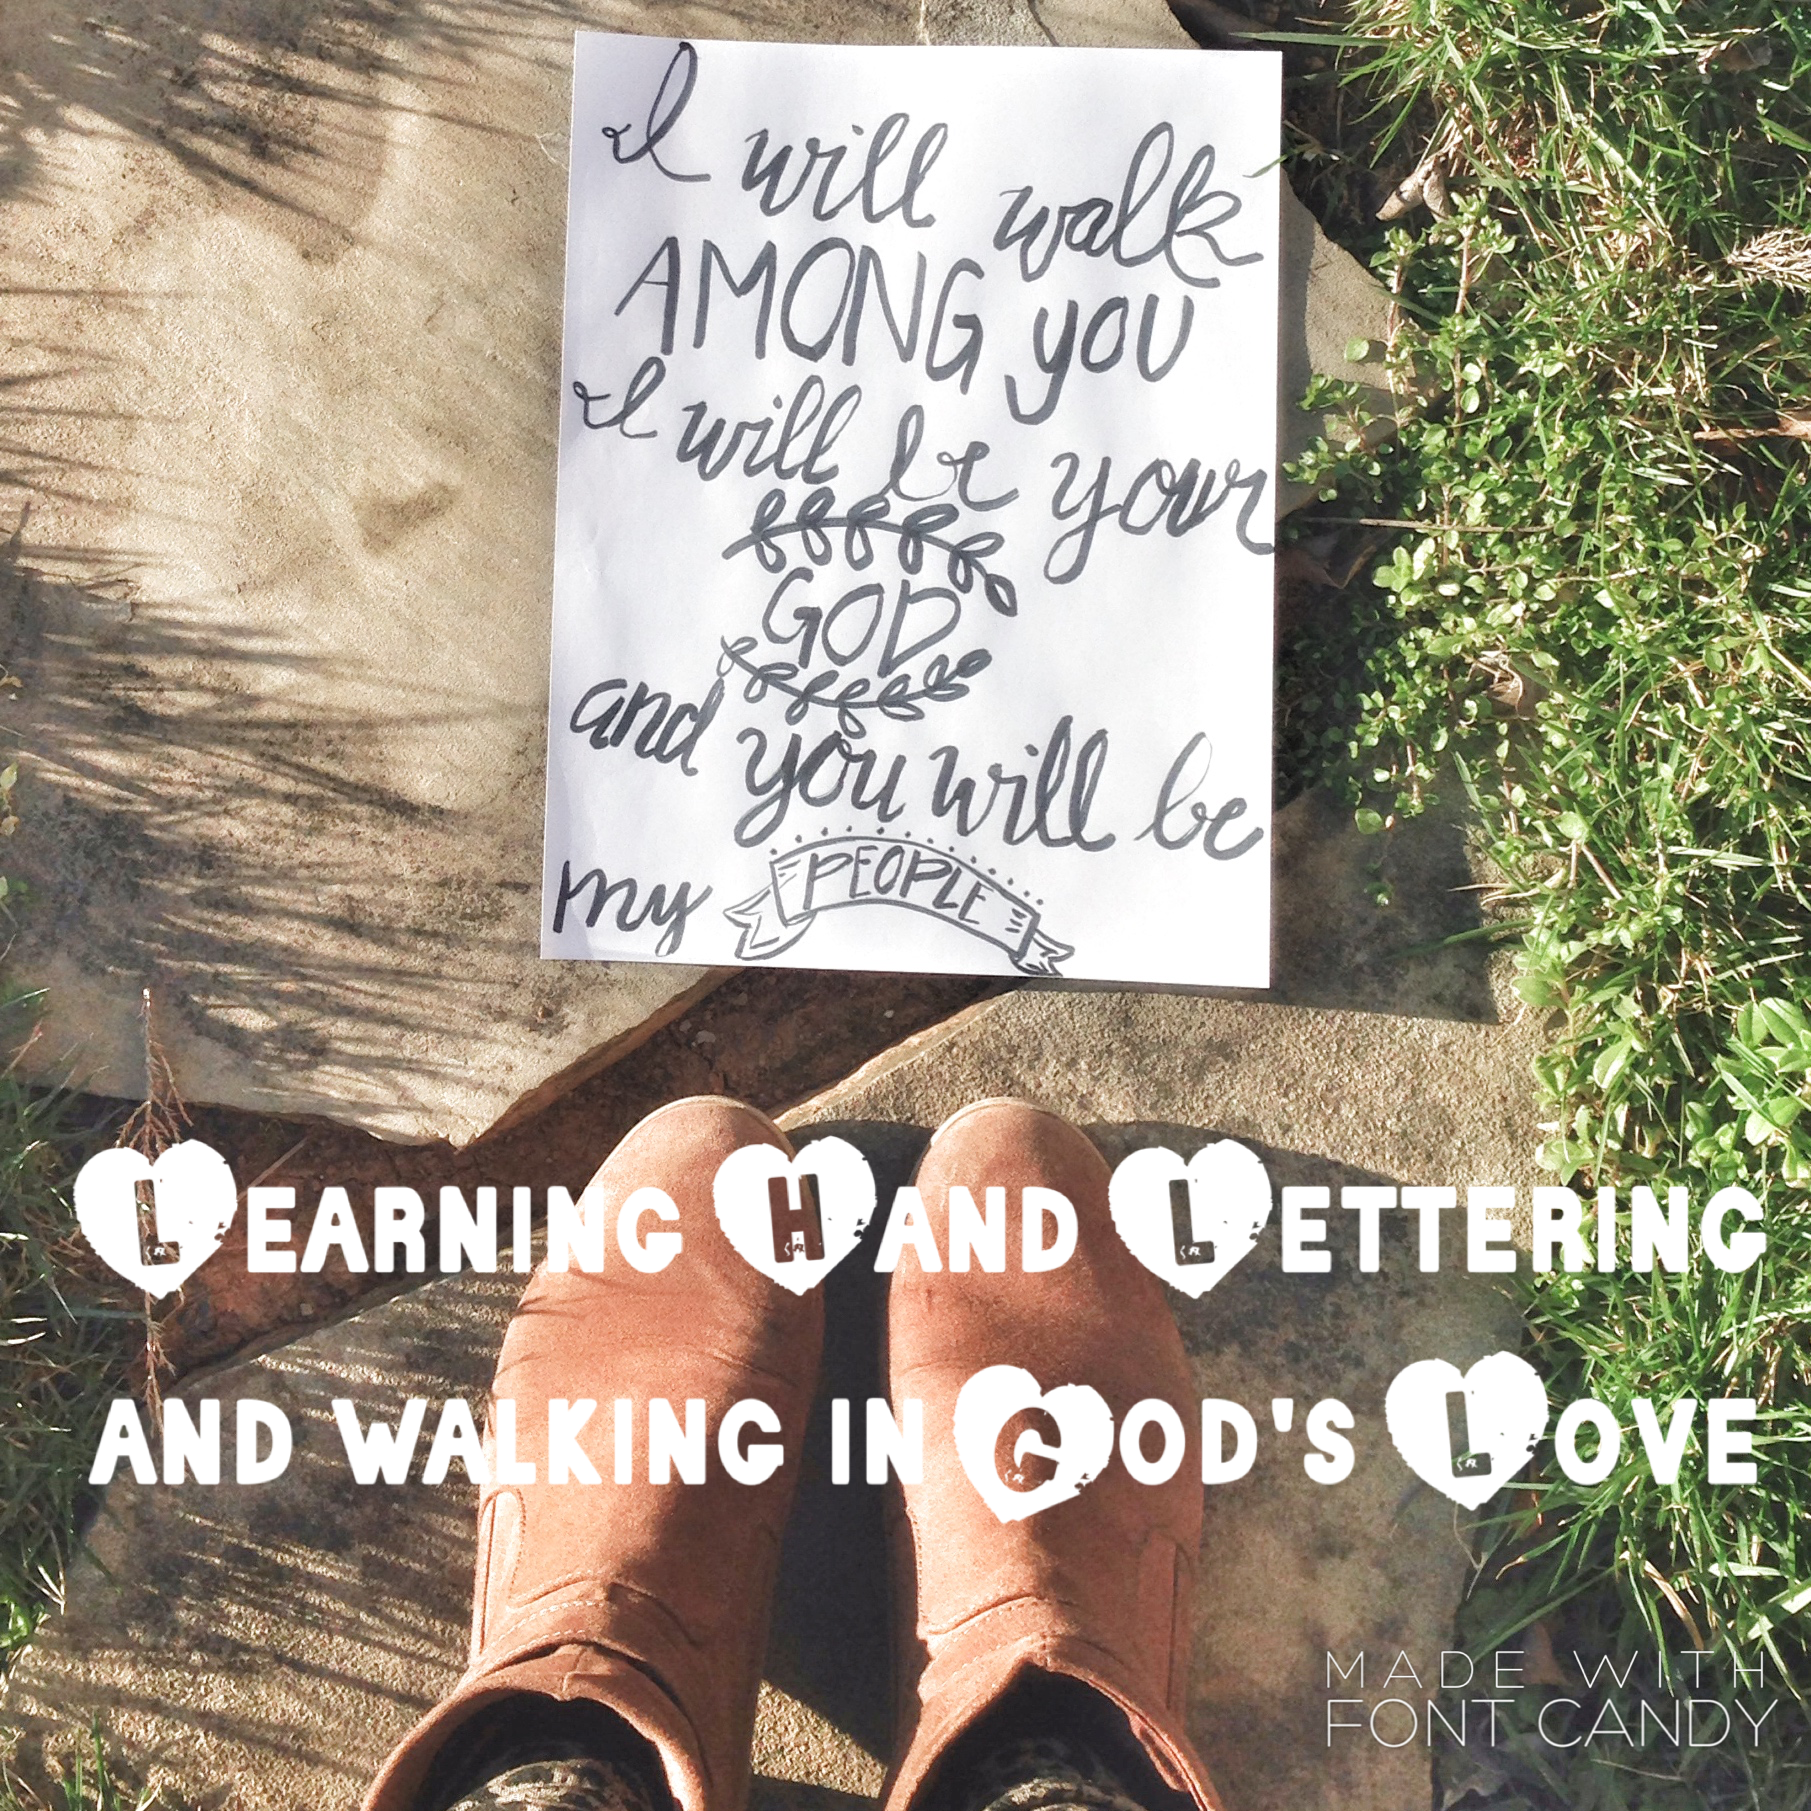 I will walk
AMONG YOU
I will be your
GOD
and you will be
my PEOPLE
LEARNING HAND LETTERING
AND WALKING IN GOD'S LOVE
MADE WITH
FONT CANDY